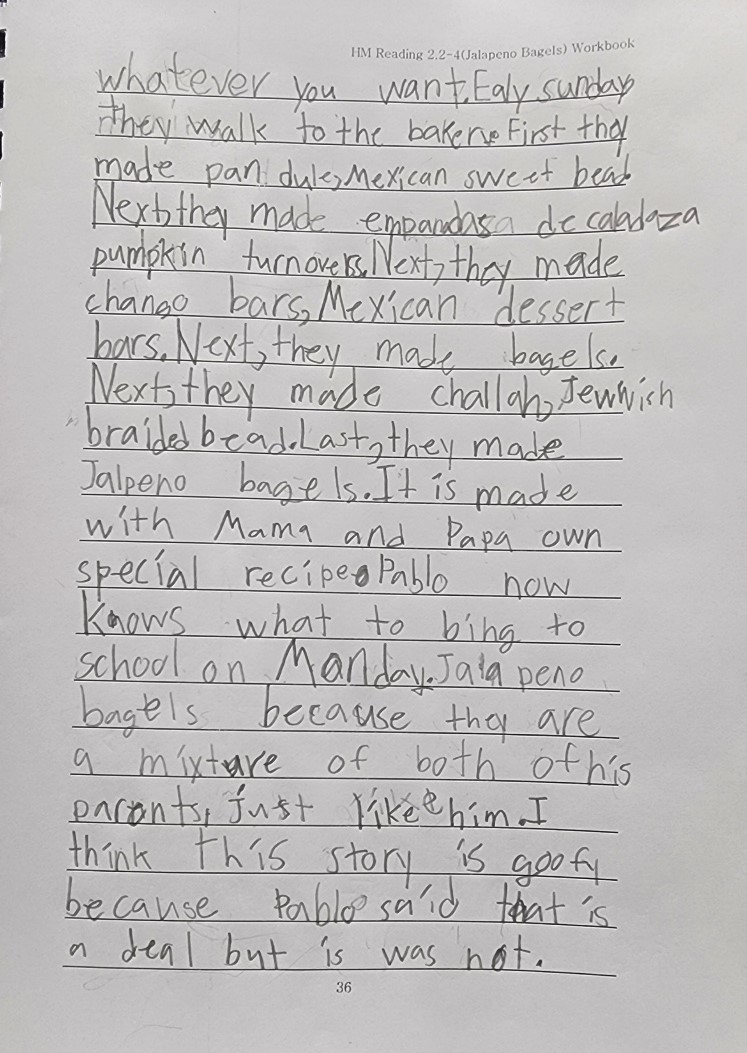 HM Reading 2.2-4(Jalapeno Bagels) Workbook
whatever you want. Ealy sunday
they walk to the bakere. First they
made pan dule, Mexican sweet bead
Next, they made empandasa de caladaza
pumpkin turnovers. Next, they made
chango bars, Mexican dessert
bars. Next, they made bagels.
Next, they made challah, Jewwish
braided bead. Last, they made
Jalpeno bagels. It is made
with Mama and Papa own
special recipe. Pablo now
knows what to bing to
school on Manday. Jalapeno
bagels because they are
a mixture of both of his
parents, just like him. I
think this story is goofy
because Pablo said that is
a deal but is was not.
36